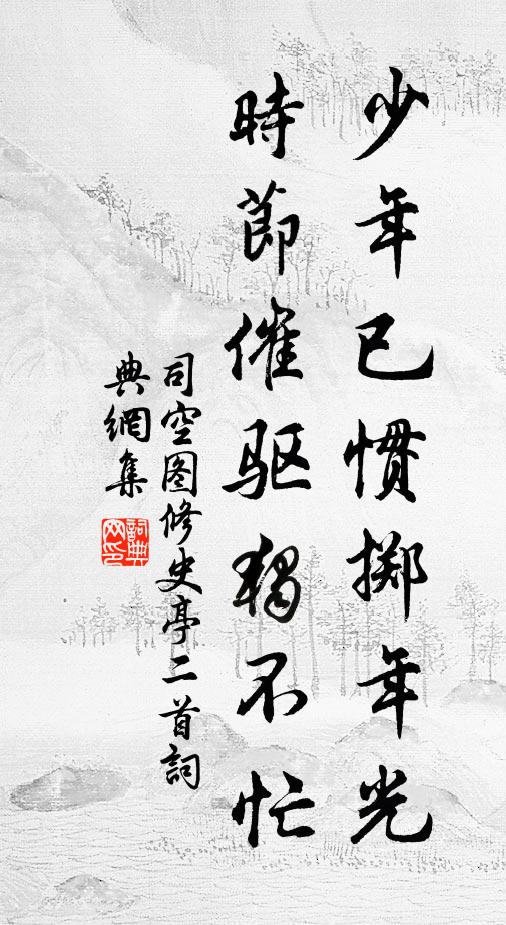 少年已惯掷年光
時節催驱独不忙
司空图修史亭二首詞
典網集
詞典网印